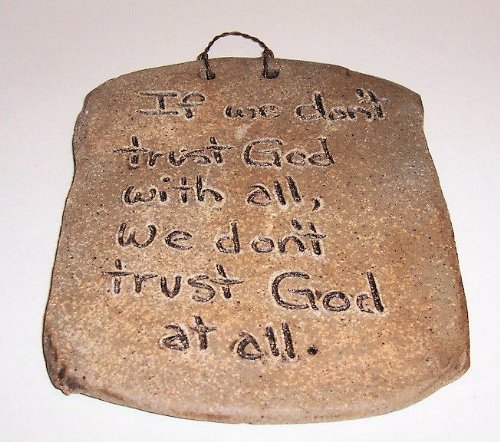 If we don't
trust God
with all,
We don't
trust God
at all.